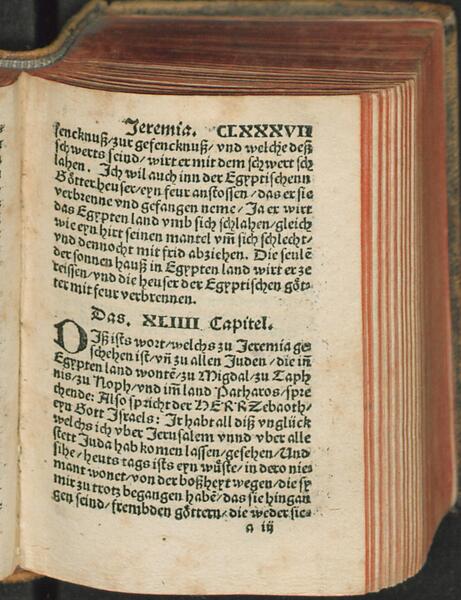 Jeremia. CLXXXVII
fencknuß/zur gefencknuß/vnd welche deß
schwerts seind/wirt er mit dem schwert sch
lahen. Ich wil auch inn der Egyptischenn
Götter heuser/eyn feur anstossen/das er sie
verbrenne vnd gefangen neme/Ja er wirt
das Egypten land vmb sich schlahen/gleich
wie eyn hirt seinen mantel vm̃ sich schlecht/
vnd dennocht mit frid abziehen. Die seulẽ
der sonnen hauß in Egypten land wirt er ze
reissen/vnd die heuser der Egyptischen göt-
ter mit feur verbrennen.
Das. XLIIII Capitel.
Diß ists wort/welchs zu Jeremia ge
schehen ist/vñ zu allen Juden/die iñ
Egypten land wontẽ/zu Migdal/zu Taph
nis/zu Noph/vnd im̃ land Patharos/spre
chende: Also spricht der HERR Zebaoth/
eyn Gott Israels: Ir habt all diß vnglück
welchs ich vber Jerusalem vnnd vber alle
stett Juda hab komen lassen/gesehen/Und
sihe/heuts tags ists eyn wůste/in dero nie-
mant wonet/von der boßheyt wegen/die sy
mir zu trotz begangen habẽ/das sie hingan
gen seind/frembden göttern/die weder sie-
a iij